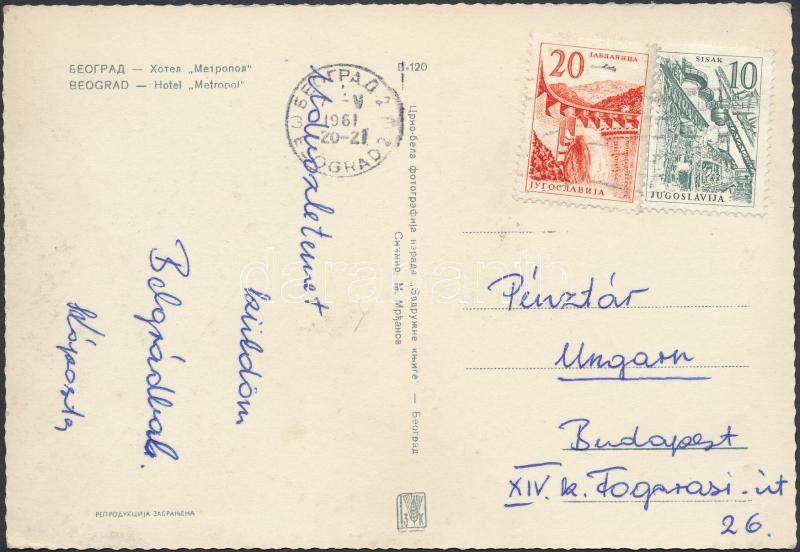 БЕОГРАД — Хотел „Метропол"
BEOGRAD — Hotel „Metropol"
B-120
БЕОГРАД 2
V
1961
20-21
BEOGRAD 2
20
ЈАБЛАНИЦА
ЈУГОСЛАВИЈА
SISAK
10
JUGOSLAVIJA
Üdvözletemet
küldöm
Belgrádból.
Црно-бела фотографија израда „Задружне књиге" — Београд
Снимио М. Мрђанов
Pénztár
Ungarn
Budapest
XIV. k. Fogarasi-út
26.
З К
РЕПРОДУКЦИЈА ЗАБРАЊЕНА
darabanth